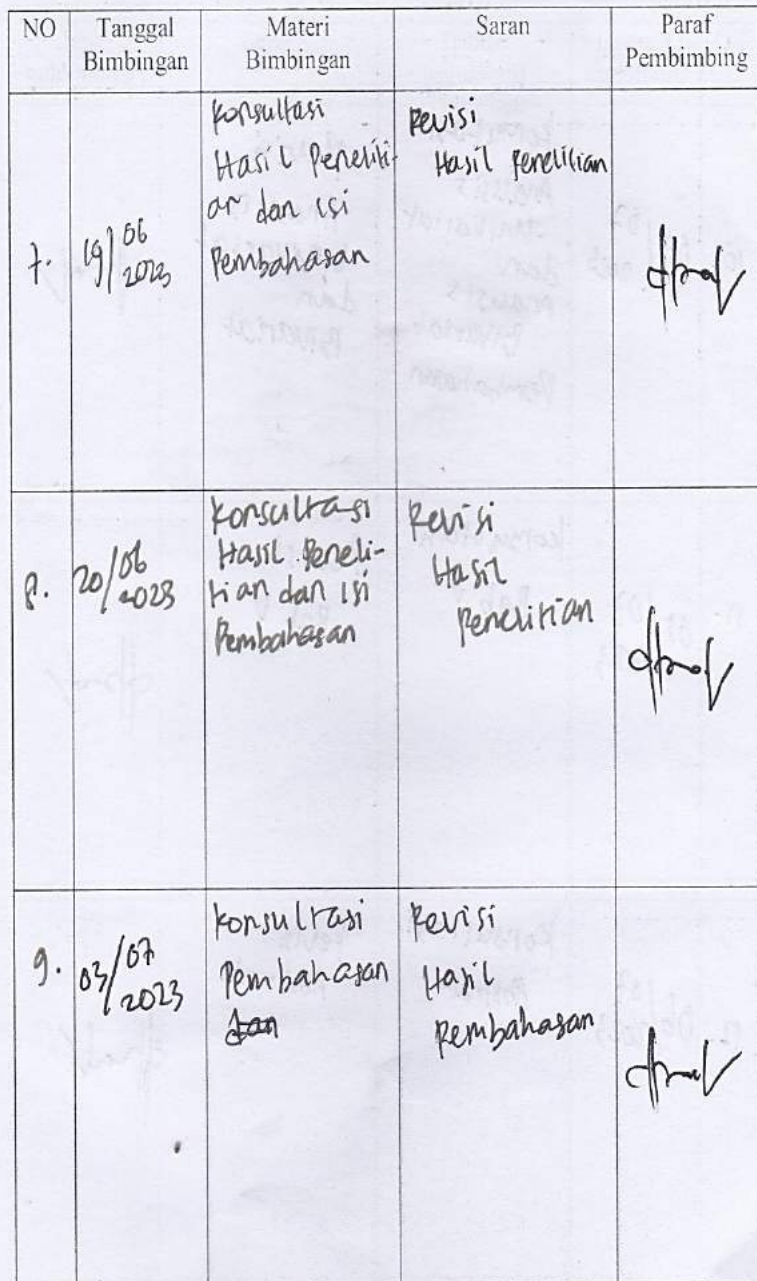 NO
Tanggal
Bimbingan
Materi
Bimbingan
Saran
Paraf
Pembimbing
7.
19/06
2023
Konsultasi
Hasil Peneliti-
an dan isi
Pembahasan
Revisi
Hasil Penelitian
8.
20/06
2023
Konsultasi
Hasil Peneli-
tian dan isi
Pembahasan
Revisi
Hasil
Penelitian
9.
03/07
2023
Konsultasi
Pembahasan
dan
Revisi
Hasil
Pembahasan